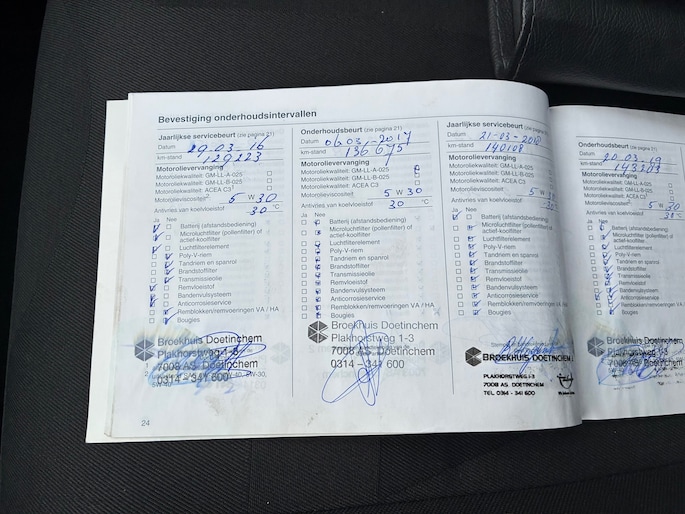 Bevestiging onderhoudsintervallen
Jaarlijkse servicebeurt (zie pagina 21)
Datum 29-03-16
km-stand 129223
Motorolievervanging
Motoroliekwaliteit: GM-LL-A-025
Motoroliekwaliteit: GM-LL-B-025
Motoroliekwaliteit: ACEA C3
Motorolieviscositeit 5 W 30
Antivries van koelvloeistof 30 °C
Ja Nee
Batterij (afstandsbediening)
Microluchtfilter (pollenfilter) of
actief-koolfilter
Luchtfilterelement
Poly-V-riem
Tandriem en spanrol
Brandstoffilter
Transmissieolie
Remvloeistof
Bandenvulsysteem
Anticorrosieservice
Remblokken/remvoeringen VA / HA
Bougies
Broekhuis Doetinchem
Plakhorstweg 1-3
7008 AS Doetinchem
0314 - 341 600
24
Onderhoudsbeurt (zie pagina 21)
Datum 06 03 - 2017
km-stand 136 675
Motorolievervanging
Motoroliekwaliteit: GM-LL-A-025
Motoroliekwaliteit: GM-LL-B-025
Motoroliekwaliteit: ACEA C3
Motorolieviscositeit 5 W 30
Antivries van koelvloeistof 30 °C
Ja Nee
Batterij (afstandsbediening)
Microluchtfilter (pollenfilter) of
actief-koolfilter
Luchtfilterelement
Poly-V-riem
Tandriem en spanrol
Brandstoffilter
Transmissieolie
Remvloeistof
Bandenvulsysteem
Anticorrosieservice
Remblokken/remvoeringen VA / HA
Bougies
Broekhuis Doetinchem
Plakhorstweg 1-3
7008 AS Doetinchem
0314 - 341 600
Jaarlijkse servicebeurt (zie pagina 21)
Datum 21-03-2018
km-stand 140108
Motorolievervanging
Motoroliekwaliteit: GM-LL-A-025
Motoroliekwaliteit: GM-LL-B-025
Motoroliekwaliteit: ACEA C3
Motorolieviscositeit 5 W 30
Antivries van koelvloeistof
Ja Nee
Batterij (afstandsbediening)
Microluchtfilter (pollenfilter) of
actief-koolfilter
Luchtfilterelement
Poly-V-riem
Tandriem en spanrol
Brandstoffilter
Transmissieolie
Remvloeistof
Bandenvulsysteem
Anticorrosieservice
Remblokken/remvoeringen VA / HA
Bougies
Broekhuis Doetinchem
Plakhorstweg 1-3
7008 AS Doetinchem
TEL 0314 - 341 600
Onderhoudsbeurt (zie pagina 21)
Datum 20-03-19
km-stand
Motorolievervanging
Motoroliekwaliteit: GM-LL-A-025
Motoroliekwaliteit: GM-LL-B-025
Motoroliekwaliteit: ACEA C3
Motorolieviscositeit 5 W 30
Antivries van koelvloeistof
Ja Nee
Batterij (afstandsbediening)
Microluchtfilter (pollenfilter) of
actief-koolfilter
Luchtfilterelement
Poly-V-riem
Tandriem en spanrol
Brandstoffilter
Transmissieolie
Remvloeistof
Bandenvulsysteem
Anticorrosieservice
Remblokken/remvoeringen VA
Bougies
Broekhuis Doetinchem